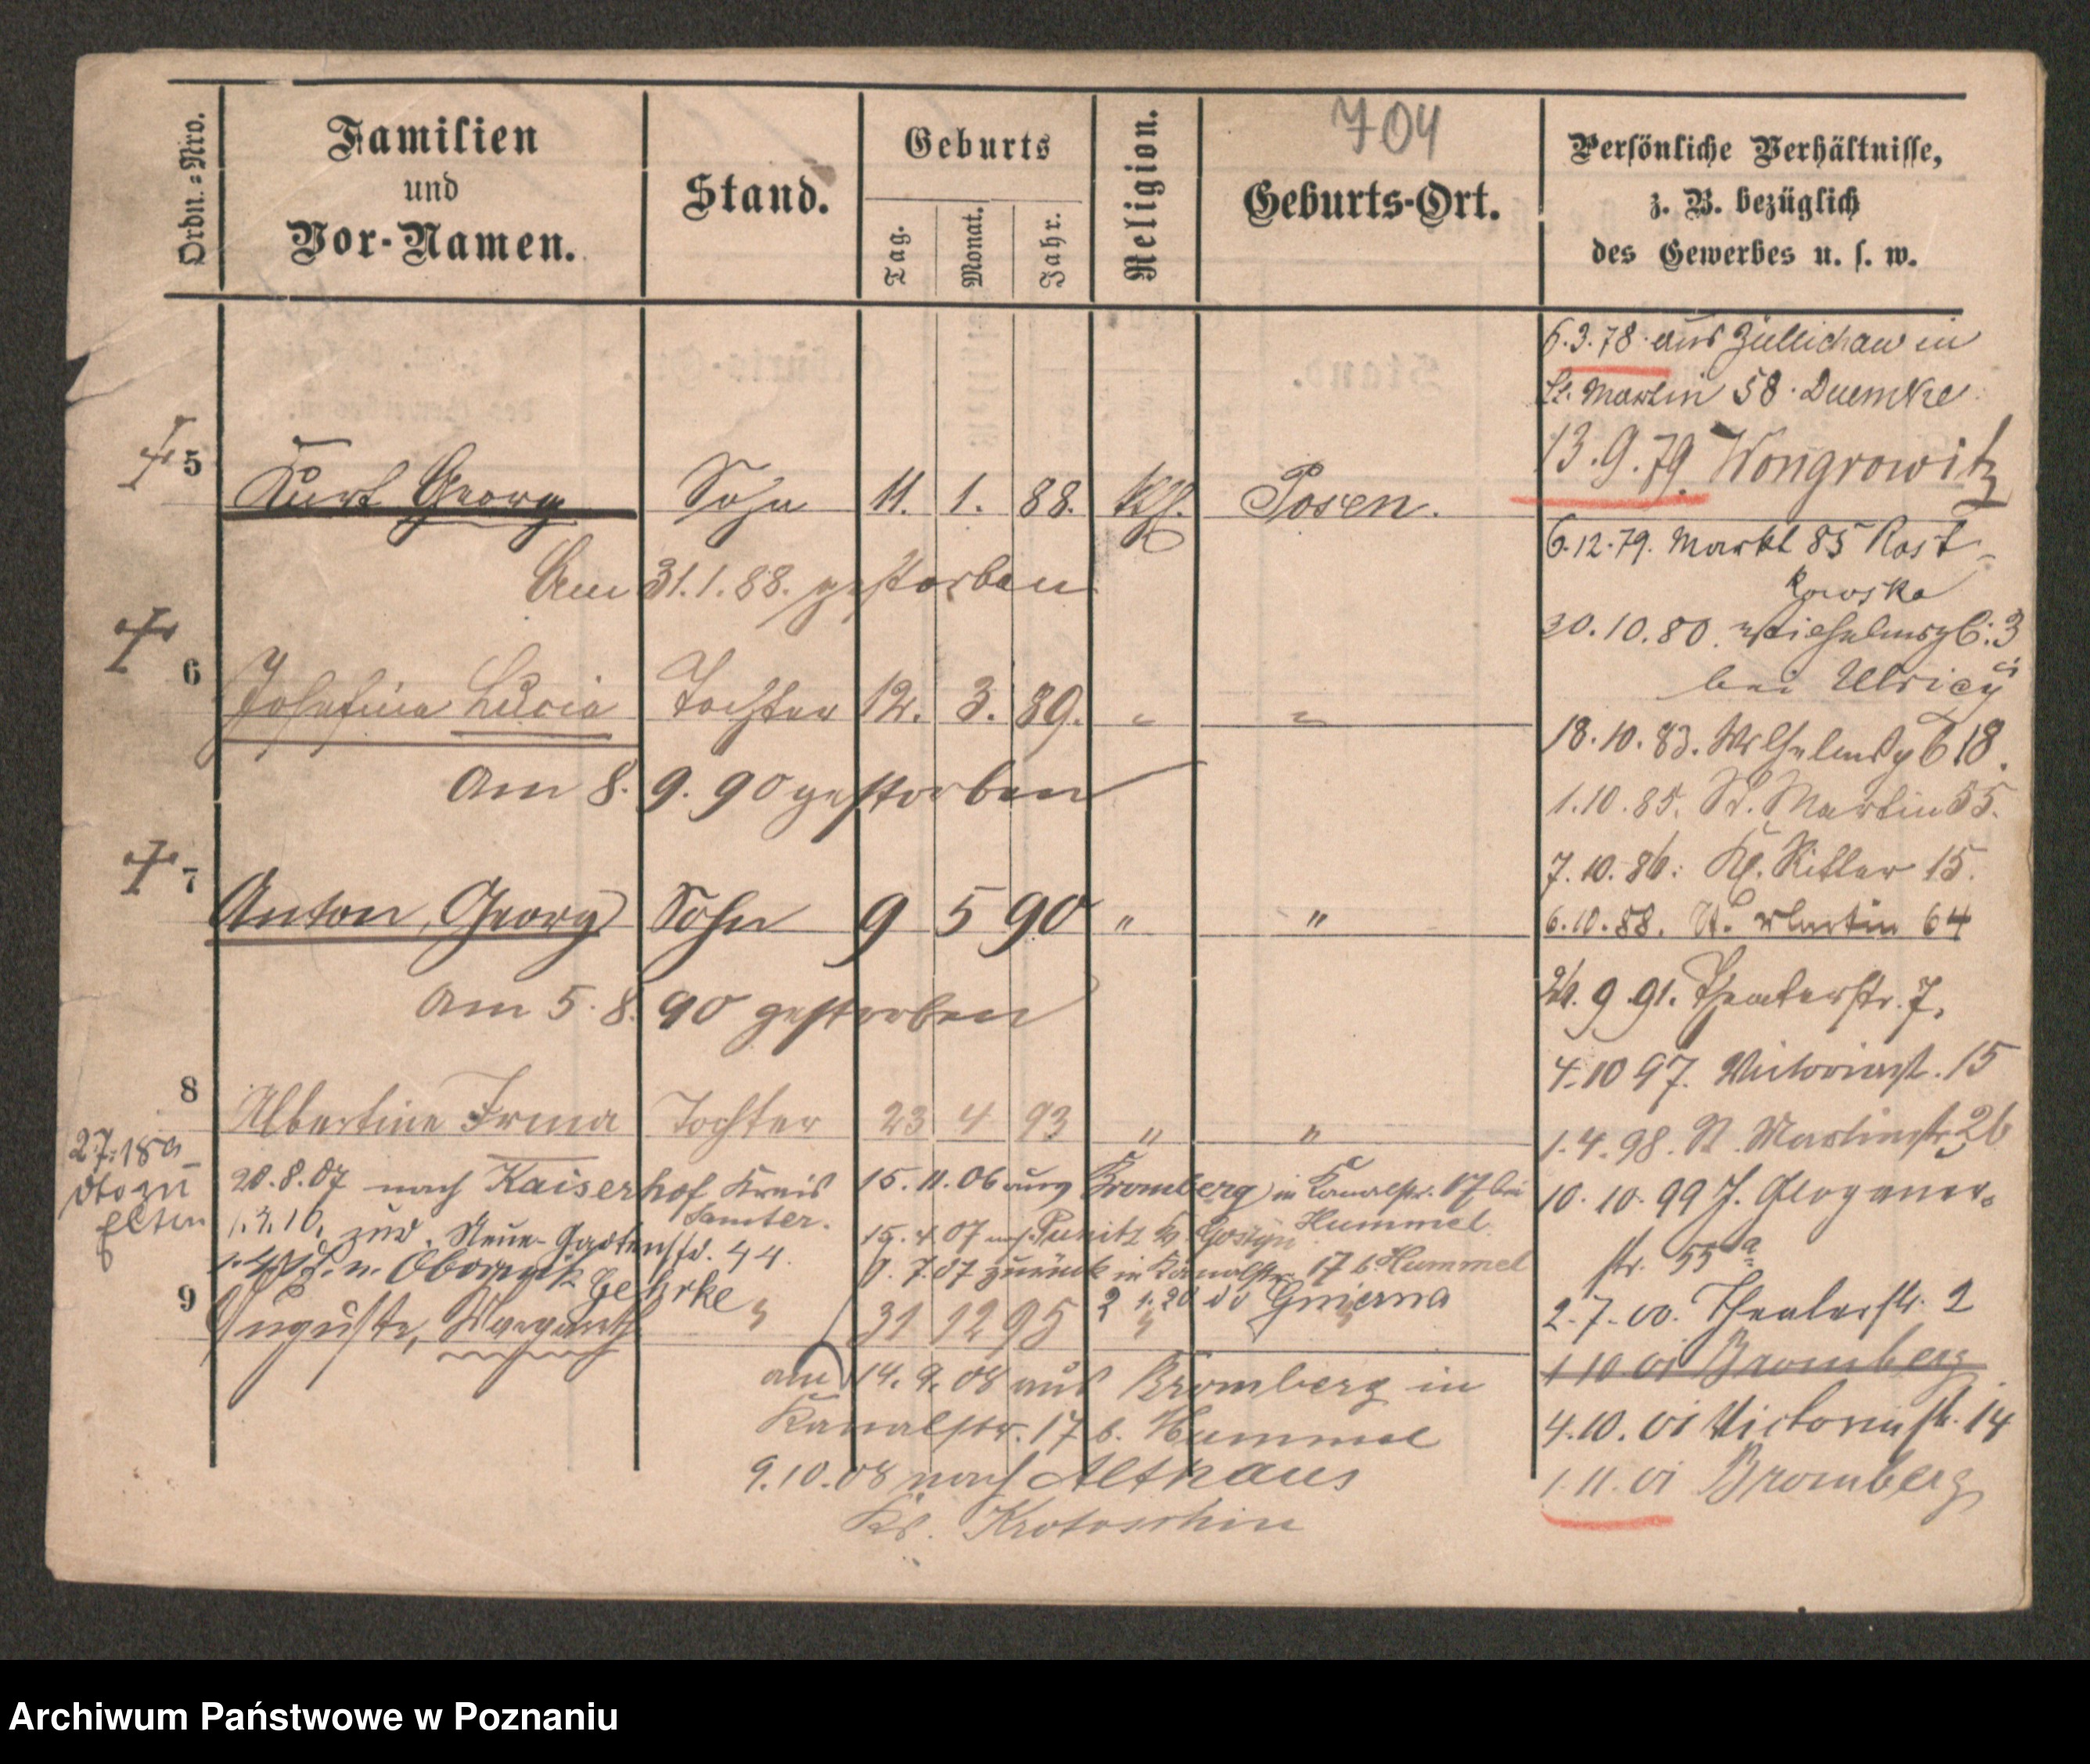 704
Ordn.=Nro.
Familien
und
Vor-Namen.
Stand.
Geburts
Tag.
Monat.
Jahr.
Religion.
Geburts-Ort.
Persönliche Verhältnisse,
z. B. bezüglich
des Gewerbes u. s. w.
5 Kurt Georg Sohn 11. 1. 88. Posen.
Am 31.1.88. gestorben
6 Josefine Lucia Tochter 12. 3. 89. " "
Am 8. 9. 90 gestorben
7 Anton, Georg Sohn 9 5 90 " "
Am 5. 8. 90 gestorben
8 Albertine Irma Tochter 23 4 93 " "
20.8.07 nach Kaiserhof Kreis
Samter.
1.3.10. zur. Neue Gartenstr. 44.
Obornik
Gehrke
15.11.06 aus Bromberg in Kanalstr. 17 bei
Hummel
15.4.07 Punitz Kr. Gostyn
7.07 zurück in Kanalstr. 17 b. Hummel
9 Auguste, Margareth " 31 12 95 " "
am 14.9.08 aus Bromberg in
Kanalstr. 17 b. Hummel
9.10.08 nach Althaus
Kr. Krotoschin
6.3.78 aus Züllichau in
St. Martin 58. Duemke
13.9.79. Wongrowitz
6.12.79. Markt 85 Rost-
kowska
30.10.80. Wilhelmspl. 3
bei Ulrici
18.10.83. Wilhelmspl 18.
1.10.85. St. Martin 55.
7.10.86. Kl. Ritter 15.
6.10.88. St. Martin 64
26.9.91. Theaterstr. 7.
4.10 97. Victoriast. 15
1.4.98. St. Martinstr. 26
10.10.99 Glogauer-
str. 55a
2.7.00. Theaterstr. 2
1 10 01 Bromberg
4.10.01 Victoriastr. 14
1.11.01 Bromberg
Archiwum Państwowe w Poznaniu